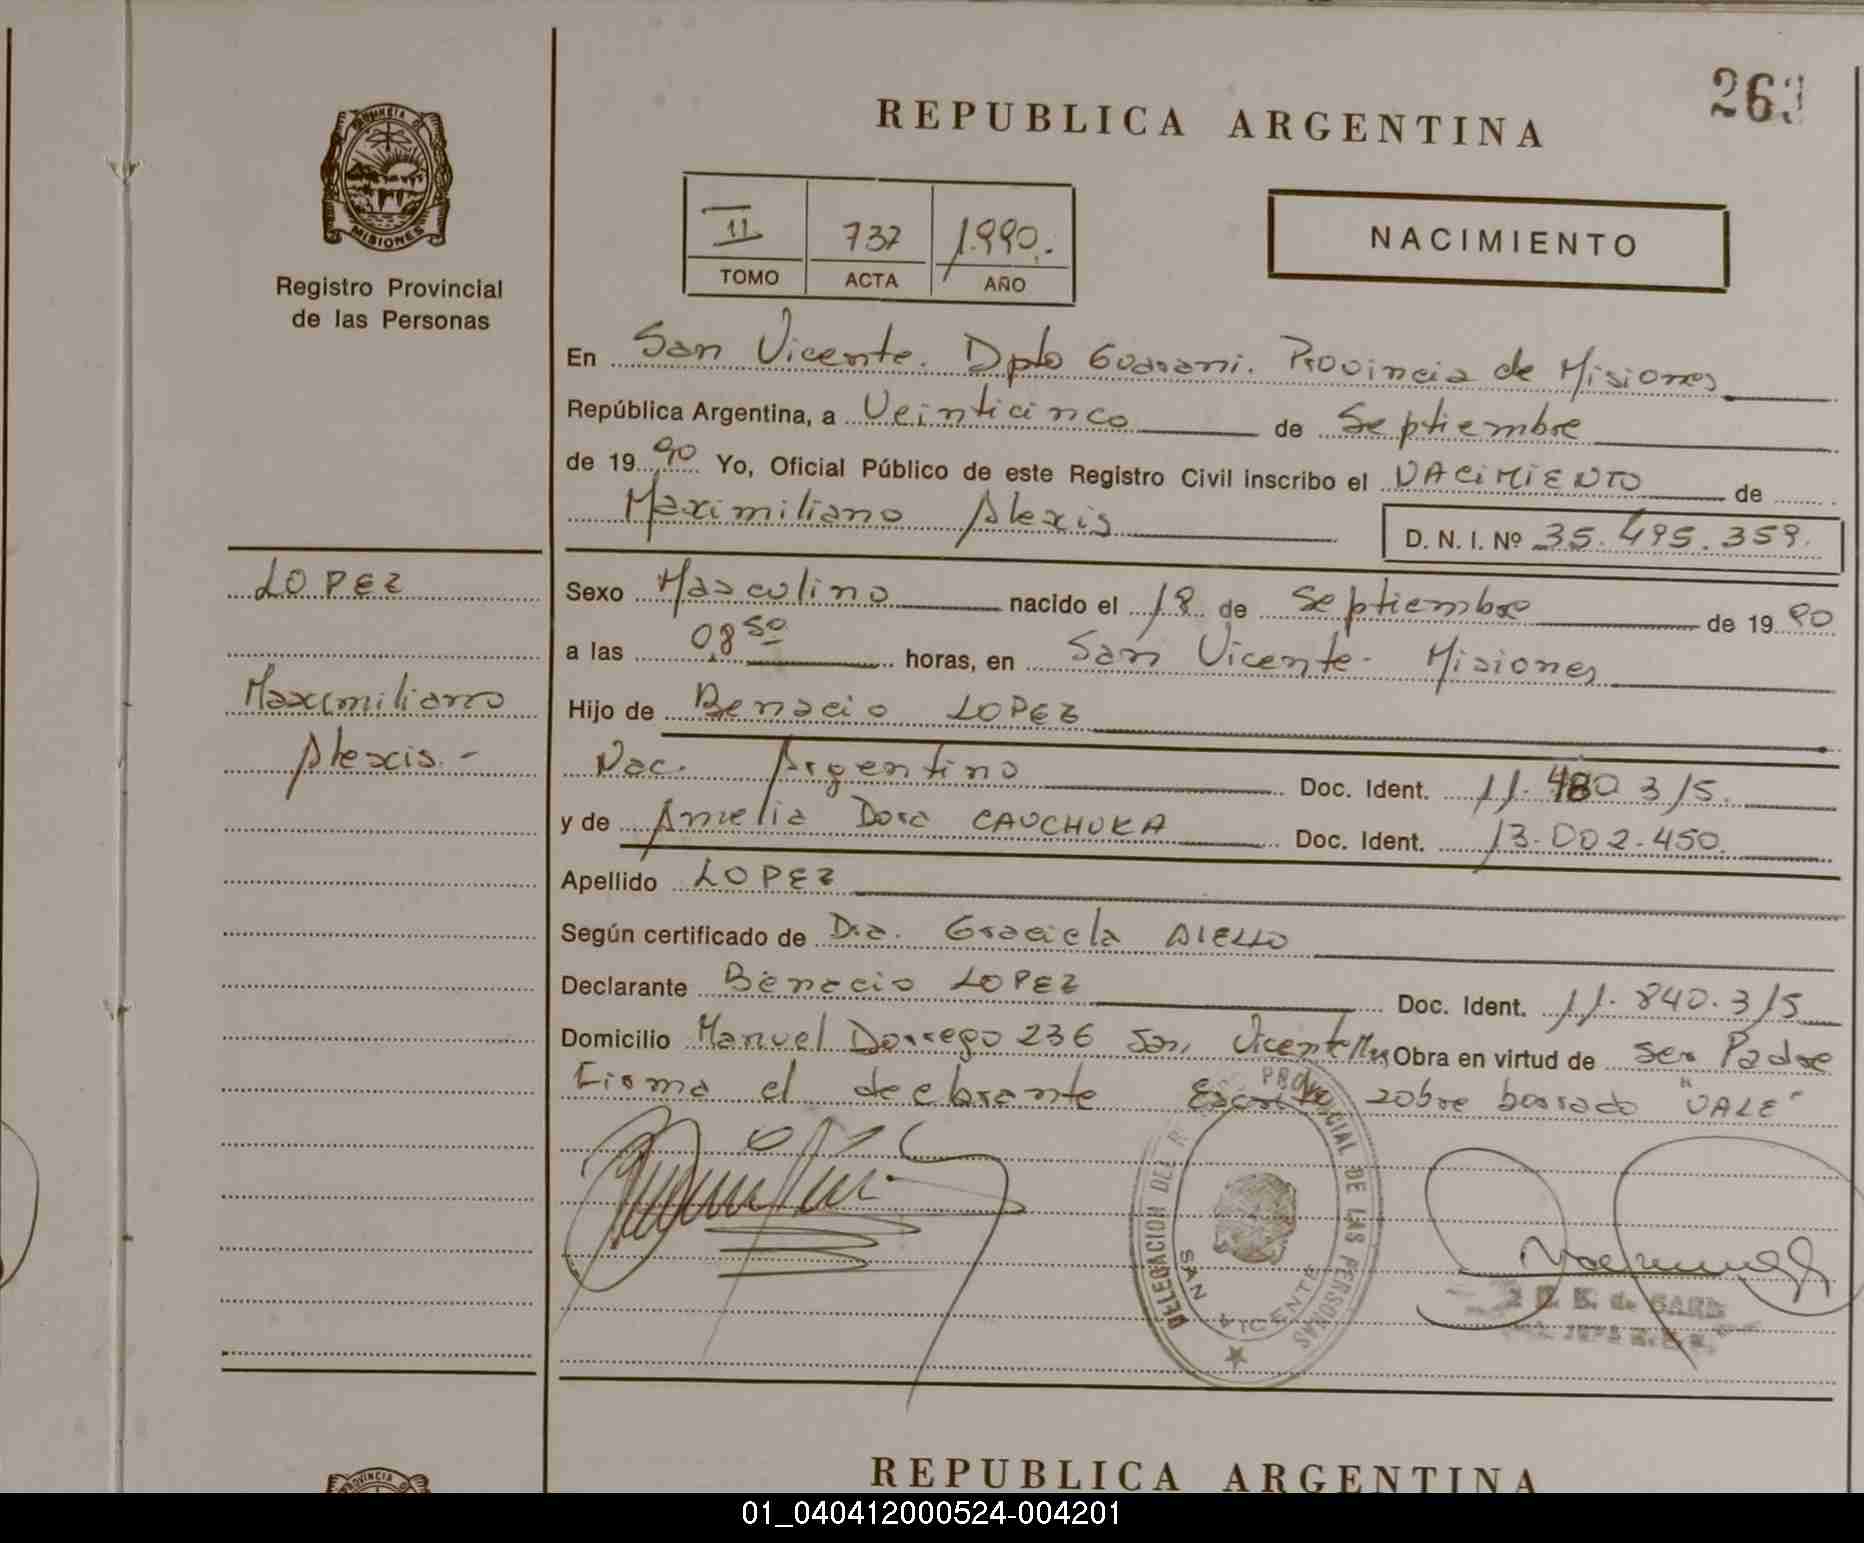 263
REPUBLICA ARGENTINA
PROVINCIA DE
MISIONES
Registro Provincial
de las Personas
II 737 1.990.-
TOMO ACTA AÑO
NACIMIENTO
En San Vicente. Dpto Guarani. Provincia de Misiones
República Argentina, a Veinticinco de Septiembre
de 19 90 Yo, Oficial Público de este Registro Civil inscribo el NACIMIENTO de
Maximiliano Alexis
D. N. I. Nº 35.495.359.
LOPEZ
Maximiliano
Alexis.-
Sexo Masculino nacido el 18 de Septiembre de 19 90
a las 08 50 horas, en San Vicente - Misiones
Hijo de Benacio LOPEZ
Nac. Argentino Doc. Ident. 11. 315.
y de Amelia Dora CAUCHUKA Doc. Ident. 13.002.450.
Apellido LOPEZ
Según certificado de Dra. Graciela AIELLO
Declarante Benecio LOPEZ Doc. Ident. 11.840.315
Domicilio Manuel Dorrego 236 San Vicente Mnes Obra en virtud de ser Padre
Firma el declarante Escrito sobre borrado "VALE"
DELEGACION DEL PROVINCIAL DE LAS PERSONAS
SAN VICENTE
REPUBLICA ARGENTINA
PROVINCIA
01_040412000524-004201